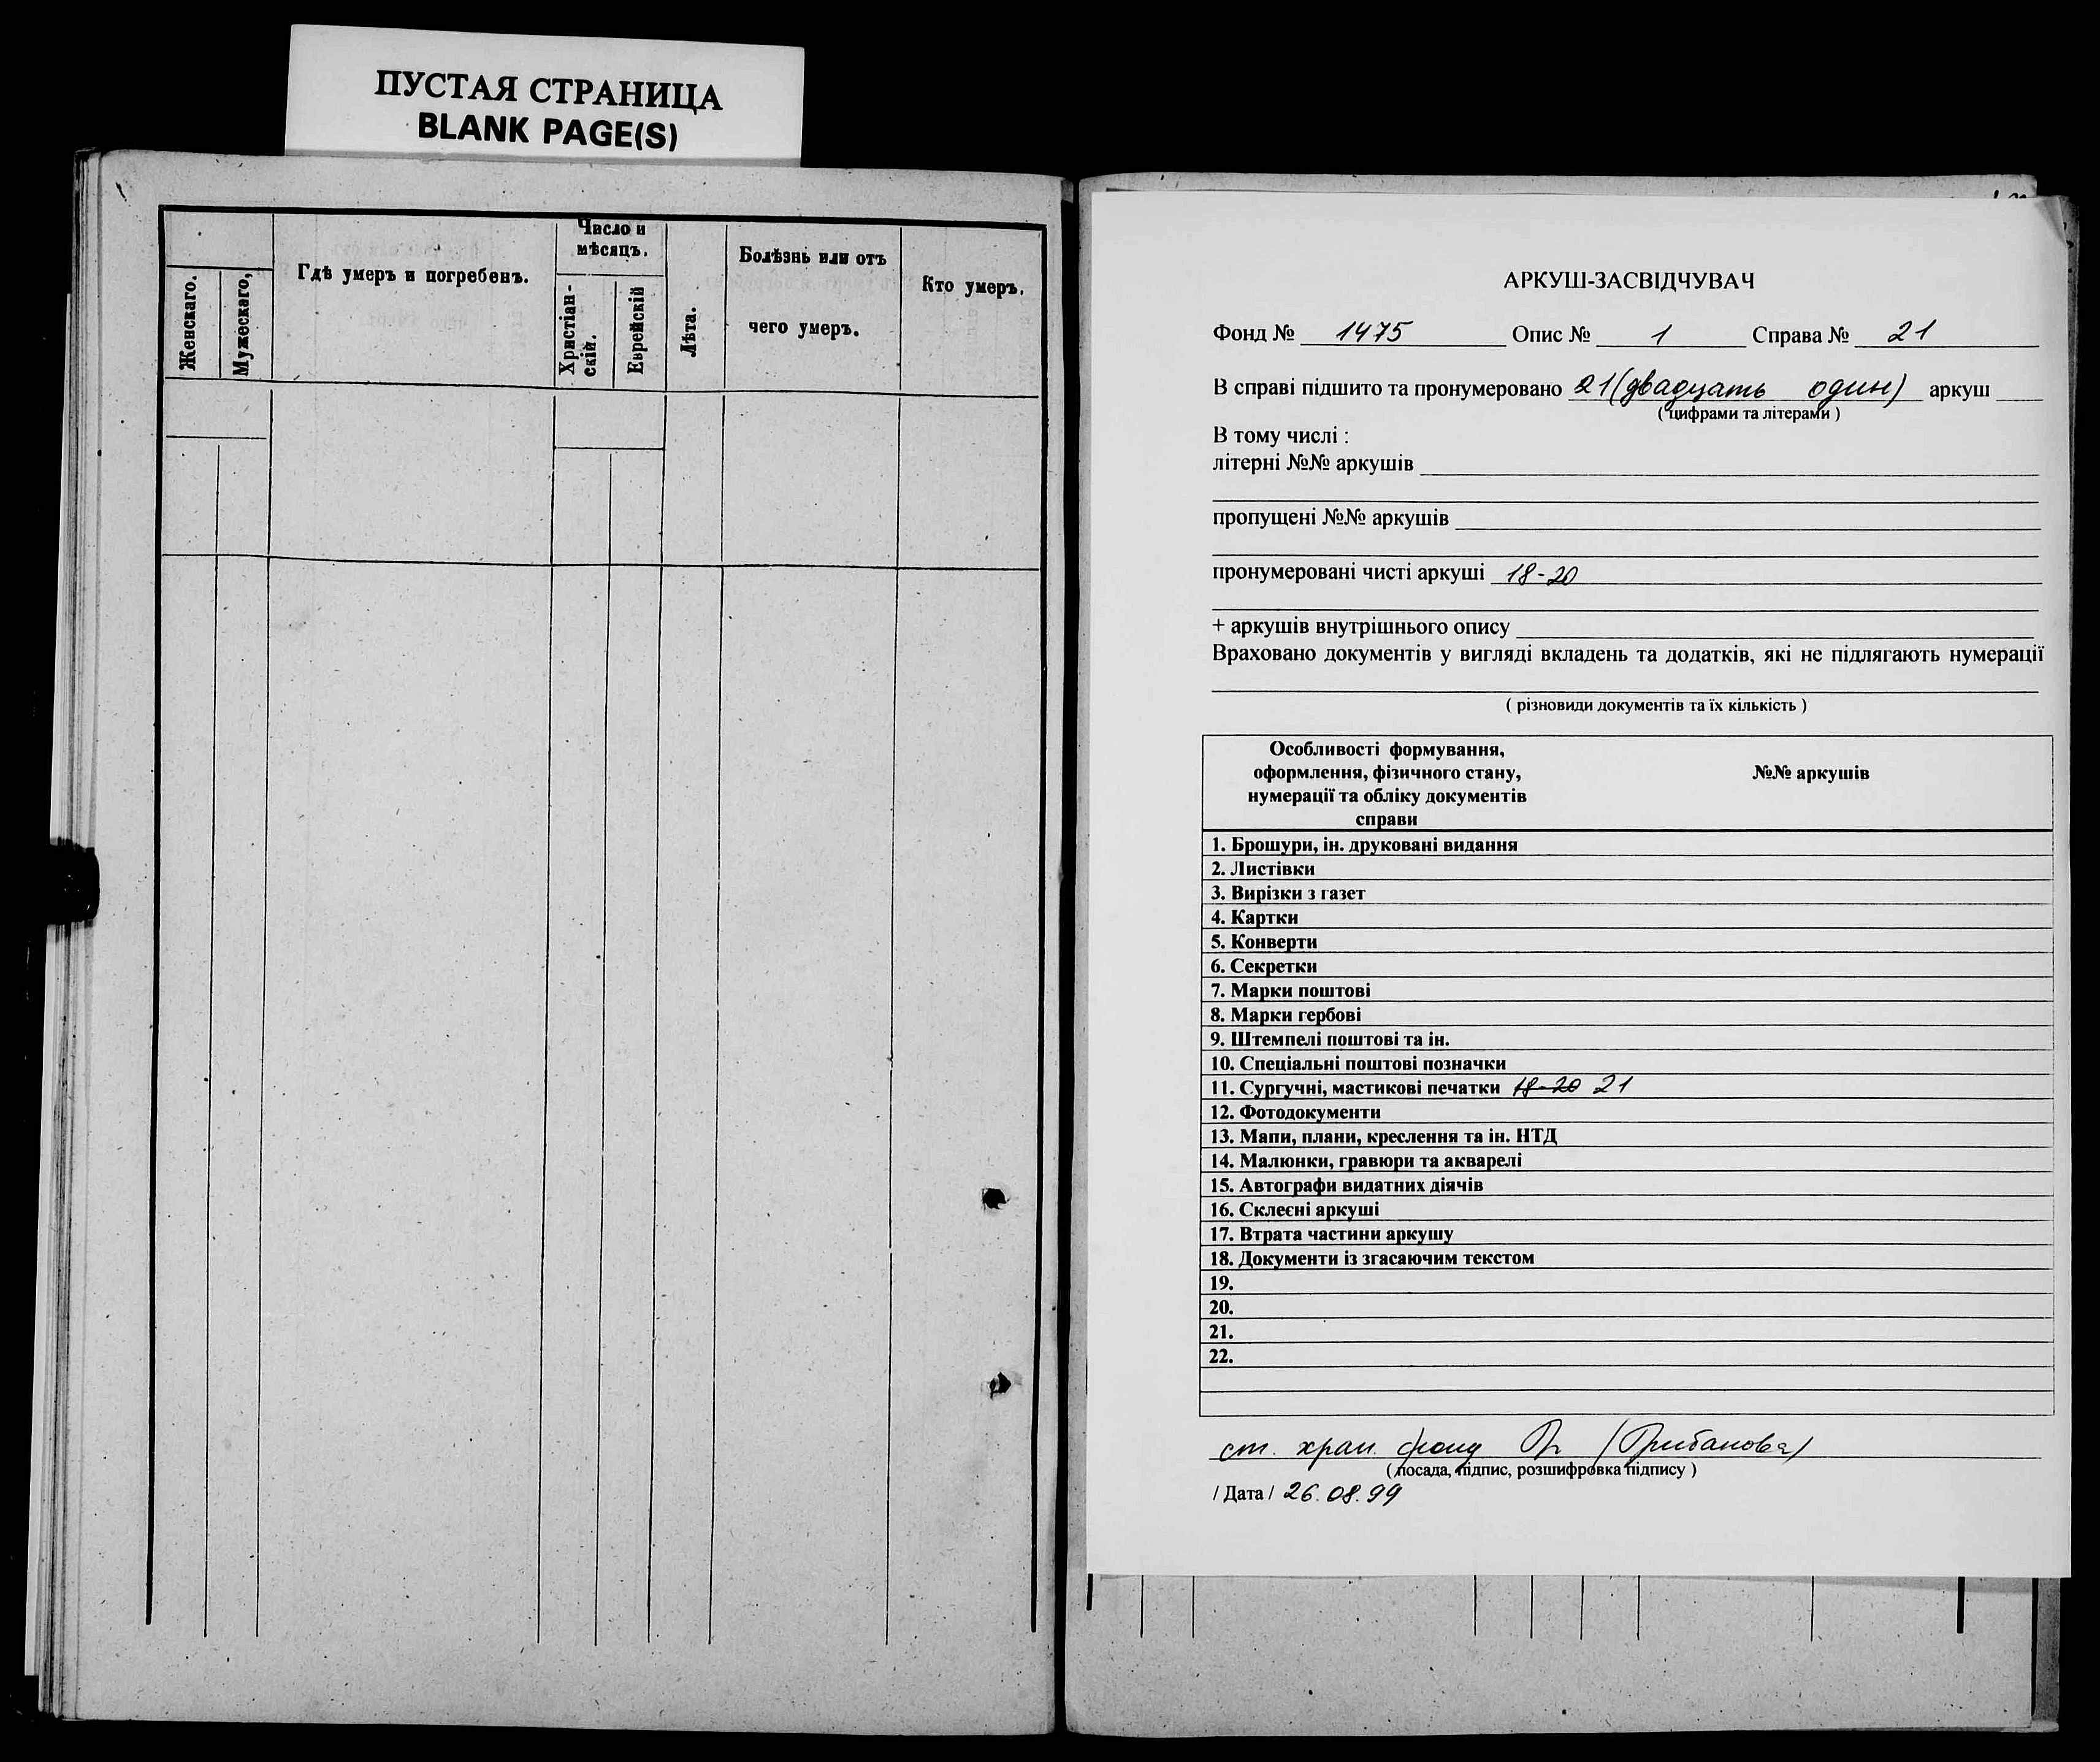 ПУСТАЯ СТРАНИЦА
BLANK PAGE(S)
Женскаго.
Мужескаго,
Гдѣ умеръ и погребенъ.
Число и
мѣсяцъ.
Христіан-
скій.
Еврейскій
Лѣта.
Болѣзнь или отъ
чего умеръ.
Кто умеръ.
АРКУШ-ЗАСВІДЧУВАЧ
Фонд № 1475 Опис № 1 Справа № 21
В справі підшито та пронумеровано 21 (двадцать один) аркуш
( цифрами та літерами )
В тому числі :
літерні №№ аркушів
пропущені №№ аркушів
пронумеровані чисті аркуші 18-20
+ аркушів внутрішнього опису
Враховано документів у вигляді вкладень та додатків, які не підлягають нумерації
( різновиди документів та їх кількість )
Особливості формування,
оформлення, фізичного стану,
нумерації та обліку документів
справи
№№ аркушів
1. Брошури, ін. друковані видання
2. Листівки
3. Вирізки з газет
4. Картки
5. Конверти
6. Секретки
7. Марки поштові
8. Марки гербові
9. Штемпелі поштові та ін.
10. Спеціальні поштові позначки
11. Сургучні, мастикові печатки 18-20 21
12. Фотодокументи
13. Мапи, плани, креслення та ін. НТД
14. Малюнки, гравюри та акварелі
15. Автографи видатних діячів
16. Склеєні аркуші
17. Втрата частини аркушу
18. Документи із згасаючим текстом
19.
20.
21.
22.
ст. хран. фонд (Грибанова)
( посада, підпис, розшифровка підпису )
/ Дата / 26.08.99